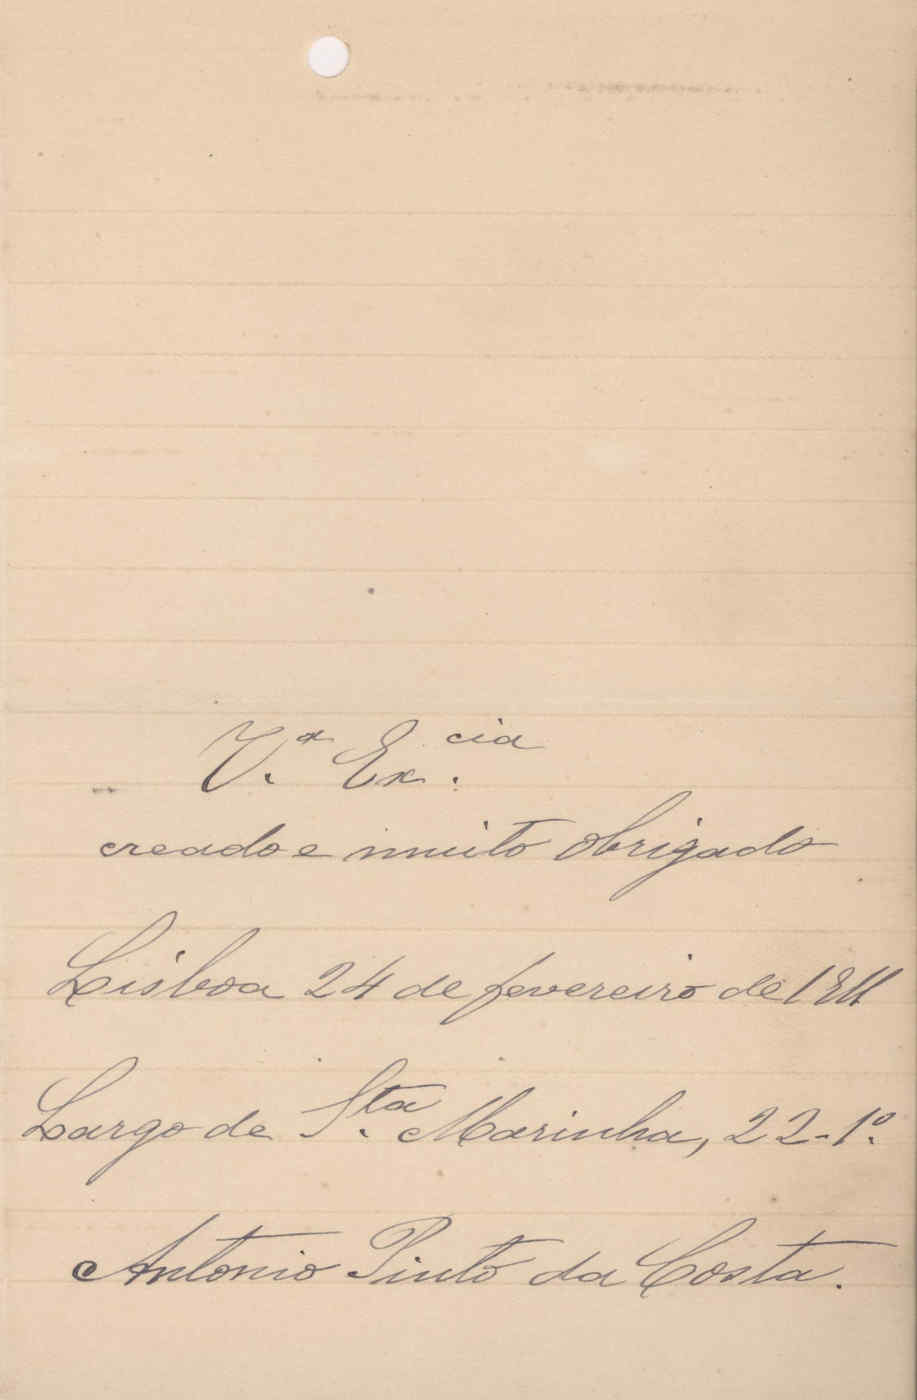 V.ª Ex.cia
creado e muito obrigado
Lisboa 24 de fevereiro de 1911
Largo de S.ta Marinha, 22-1º.
Antonio Pinto da Costa.